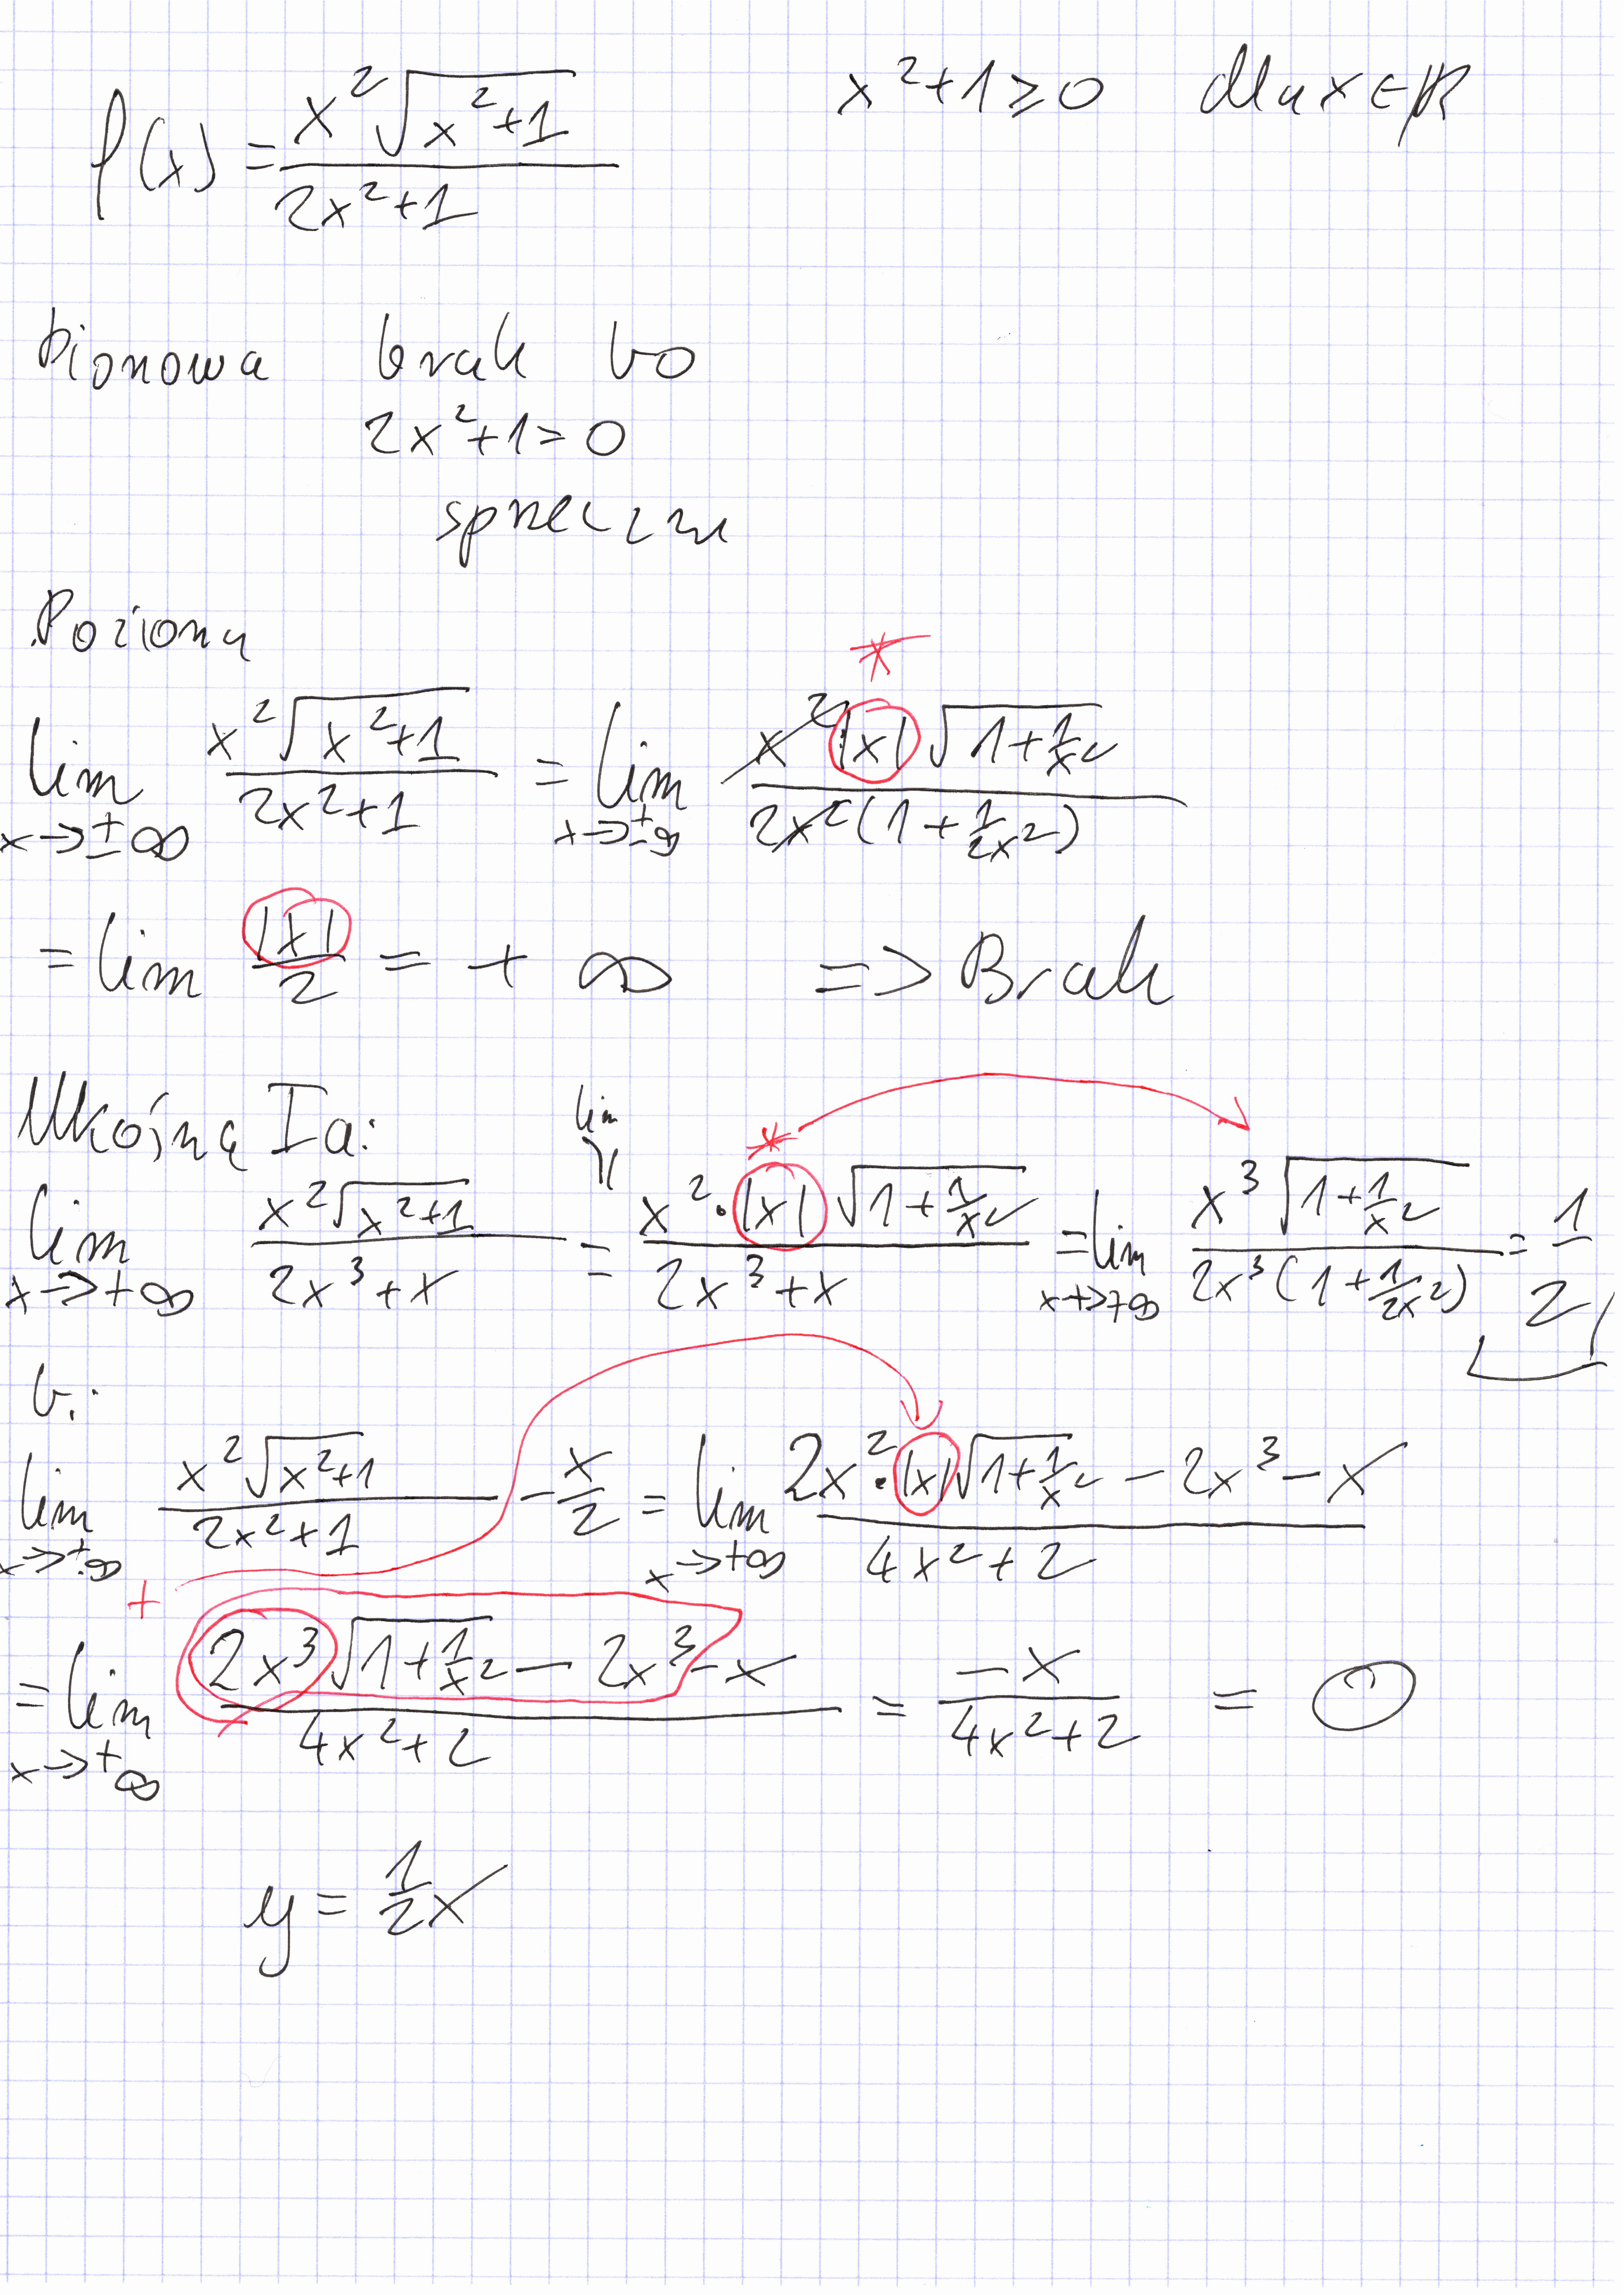 f(x) = x²√(x²+1) / (2x²+1)    x²+1 ≥ 0 dla x ∈ ℝ
pionowa brak bo
2x²+1 = 0
sprzeczn
Pozioma
*
lim x→±∞ x²√(x²+1) / (2x²+1) = lim x→±∞ x²|x|√(1+1/x²) / (2x²(1+1/(2x²)))
= lim |x|/2 = +∞ => Brak
Ukośną Ia:
lim
*
lim x→+∞ x²√(x²+1) / (2x³+x) = x²·|x|√(1+1/x²) / (2x³+x) = lim x→+∞ x³√(1+1/x²) / (2x³(1+1/(2x²))) = 1/2
b:
lim x→+∞ x²√(x²+1) / (2x²+1) - x/2 = lim x→+∞ (2x²·|x|√(1+1/x²) - 2x³ - x) / (4x²+2)
+
= lim x→+∞ (2x³√(1+1/x²) - 2x³ - x) / (4x²+2) = -x / (4x²+2) = 0
y = 1/2 x